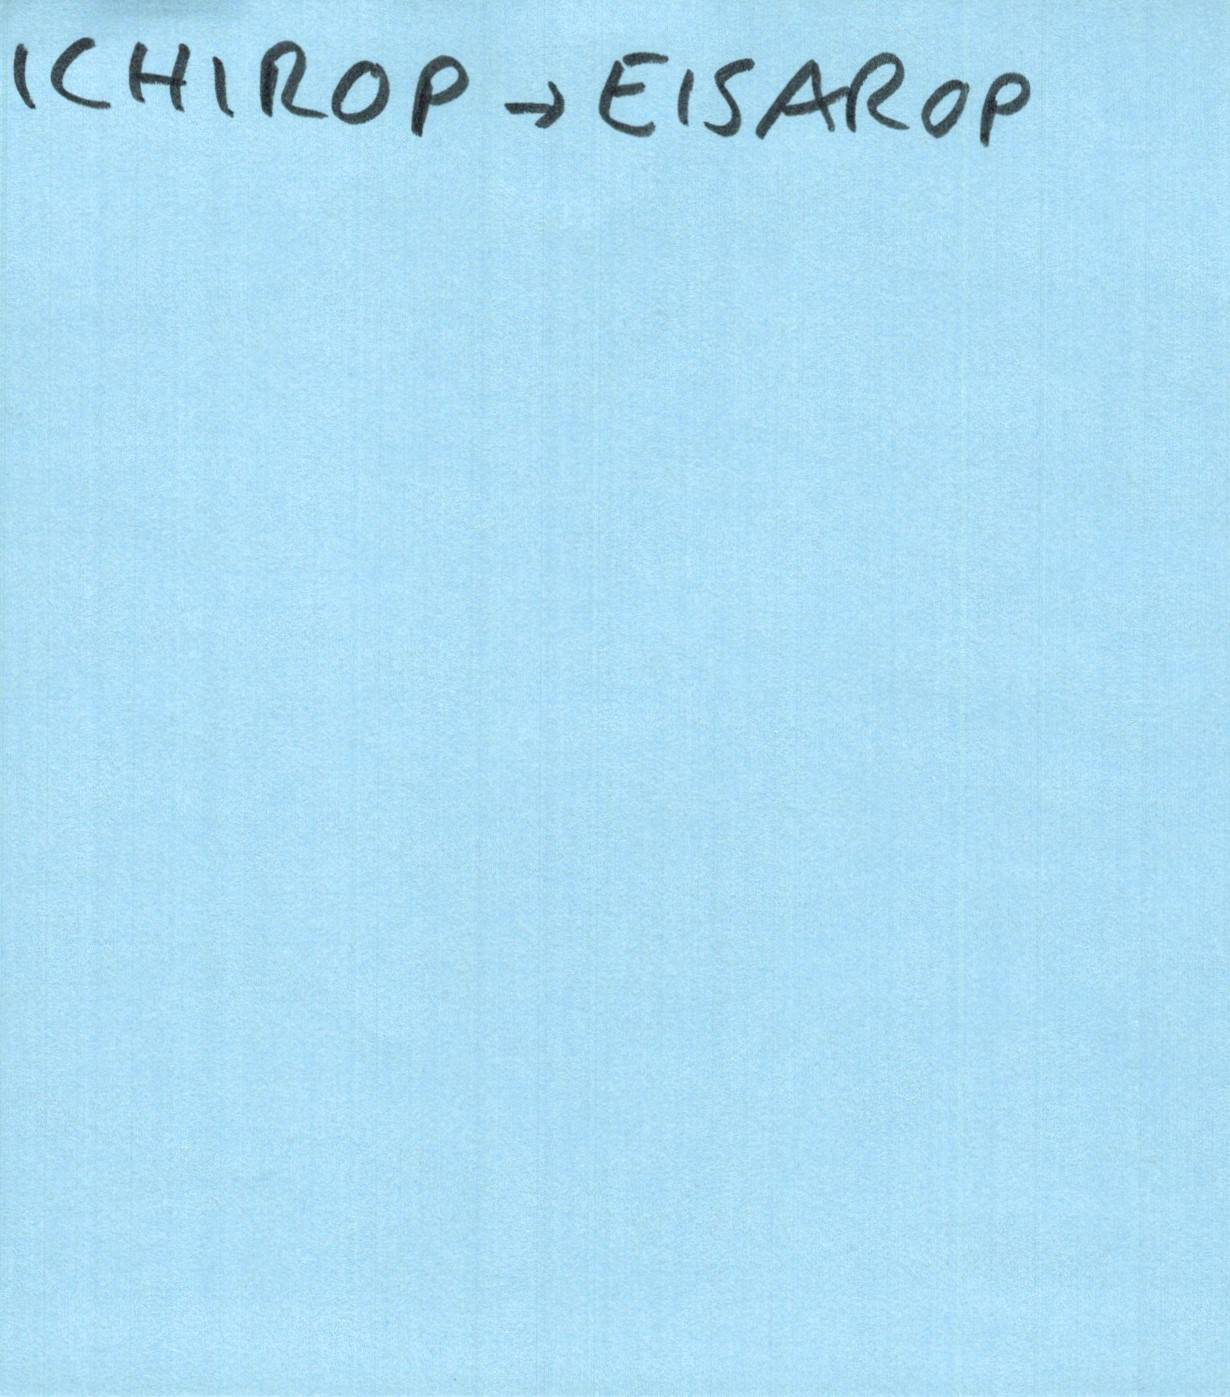 ICHIROP → EISAROP